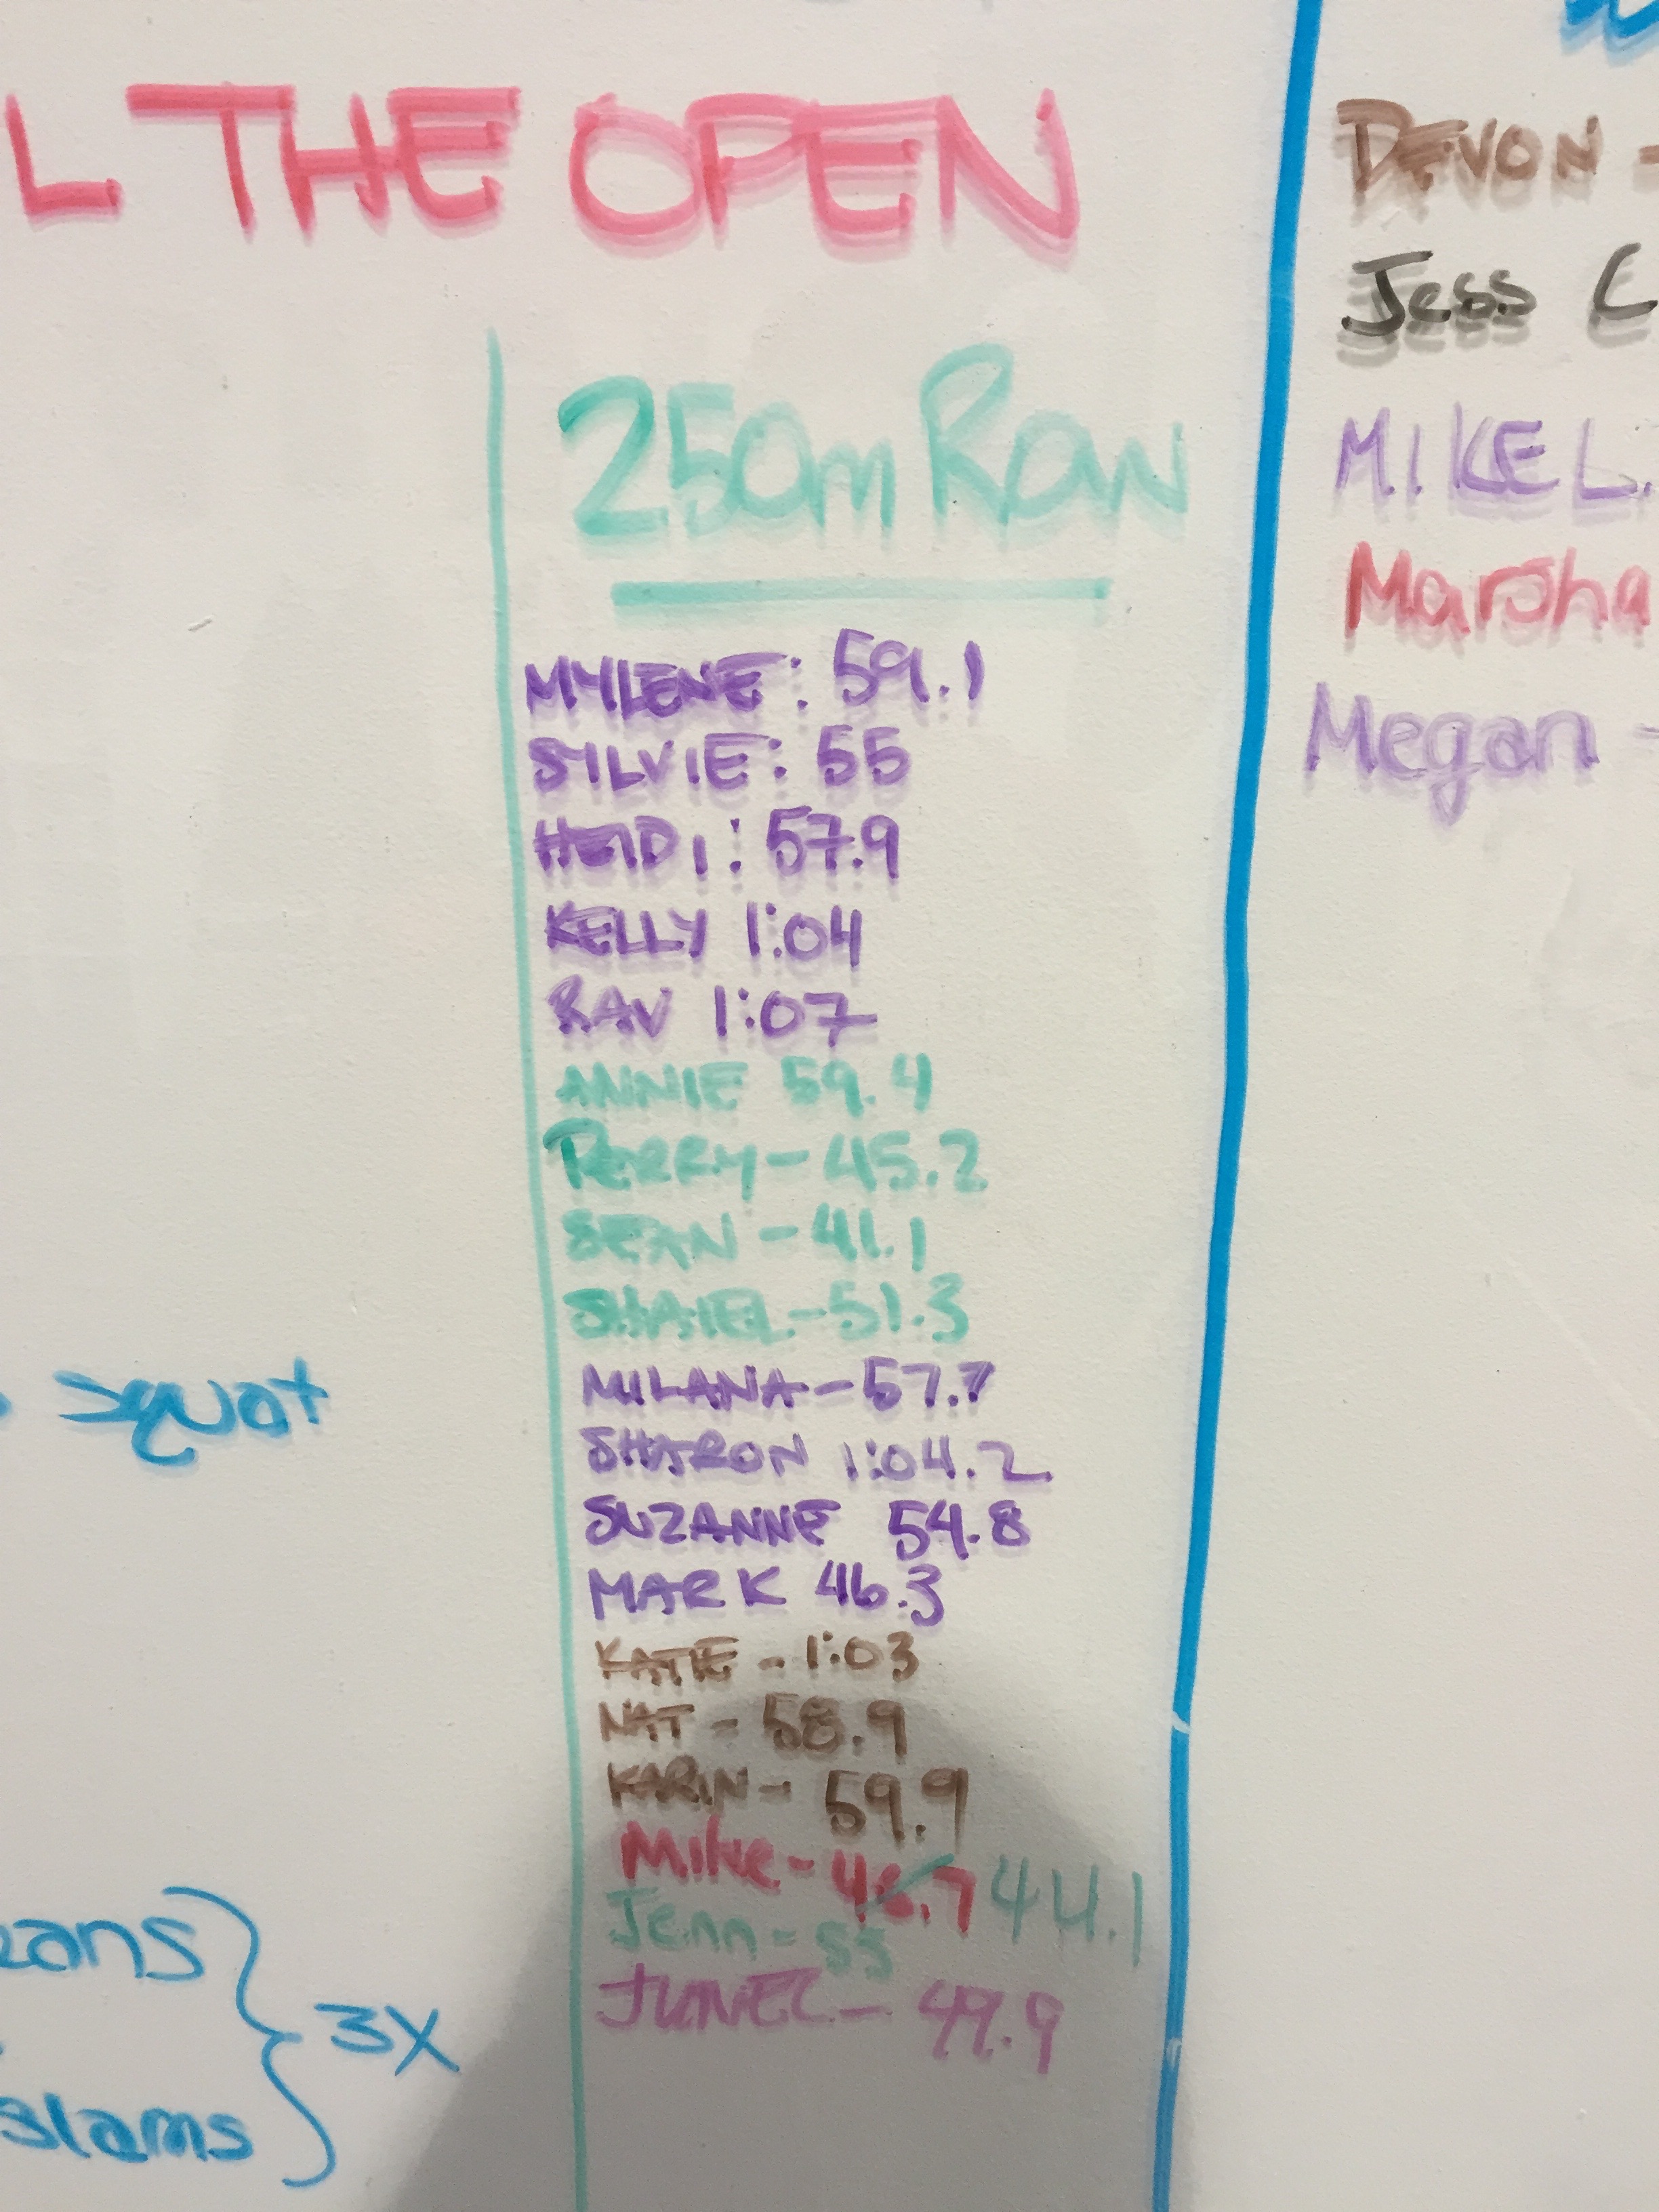 L THE OPEN
250m Row
MYLENE: 59.1
SYLVIE: 55
HEIDI: 57.9
KELLY 1:04
RAV 1:07
ANNIE 59.4
PERRY - 45.2
SEAN - 41.1
SHAIEL - 51.3
MILANA - 57.7
SHARON 1:04.2
SUZANNE 54.8
MARK 46.3
KATIE - 1:03
NAT - 58.9
KARIN - 59.9
Mike - 46.7 44.1
Jenn - 55
JUNEL - 49.9
DEVON -
Jess C
MIKE L.
Marsha
Megan -
squat
3X
slams